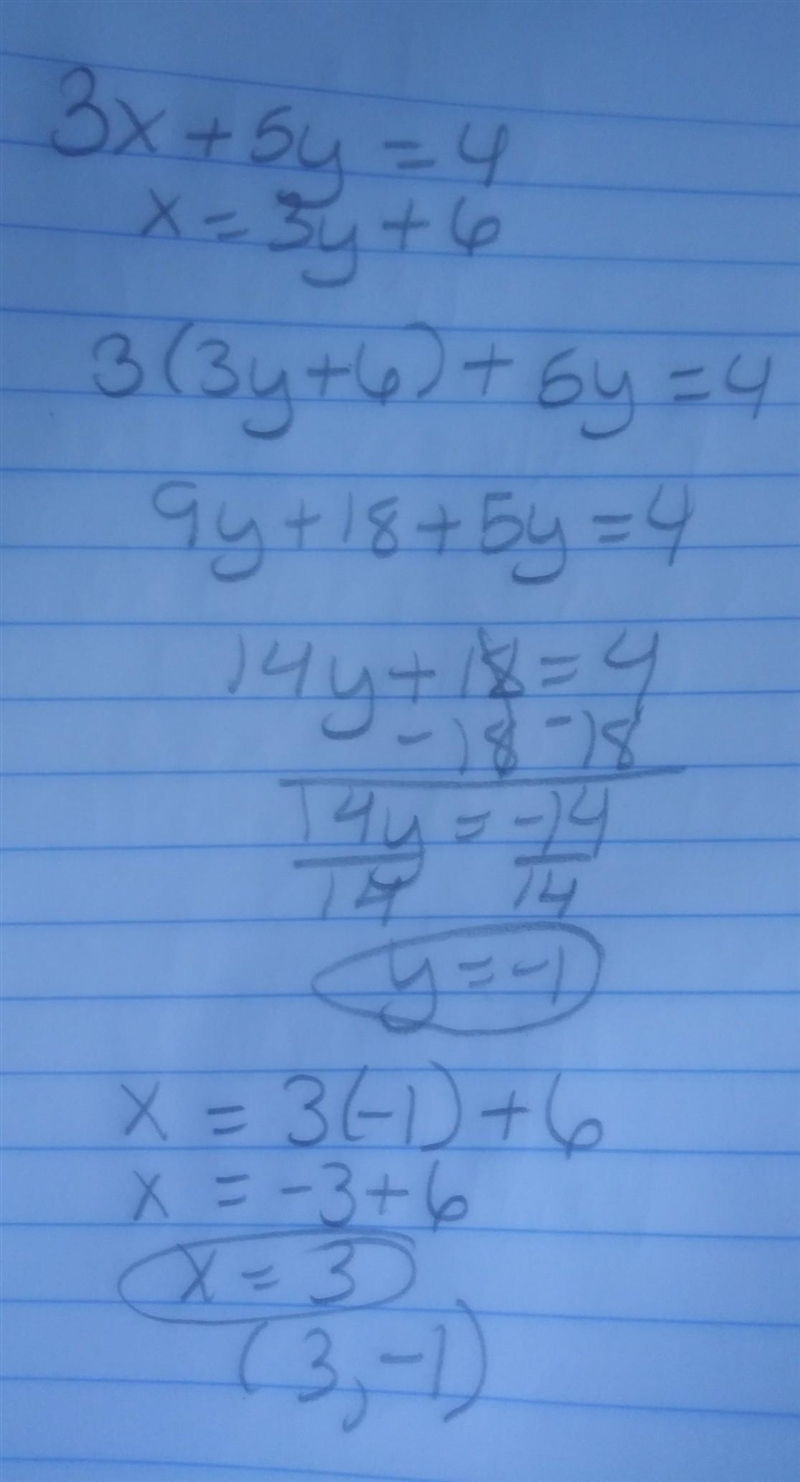 3x + 5y = 4
x = 3y + 6
3(3y + 6) + 5y = 4
9y + 18 + 5y = 4
14y + 18 = 4
- 18 - 18
14y = -14
14 14
y = -1
x = 3(-1) + 6
x = -3 + 6
x = 3
(3, -1)